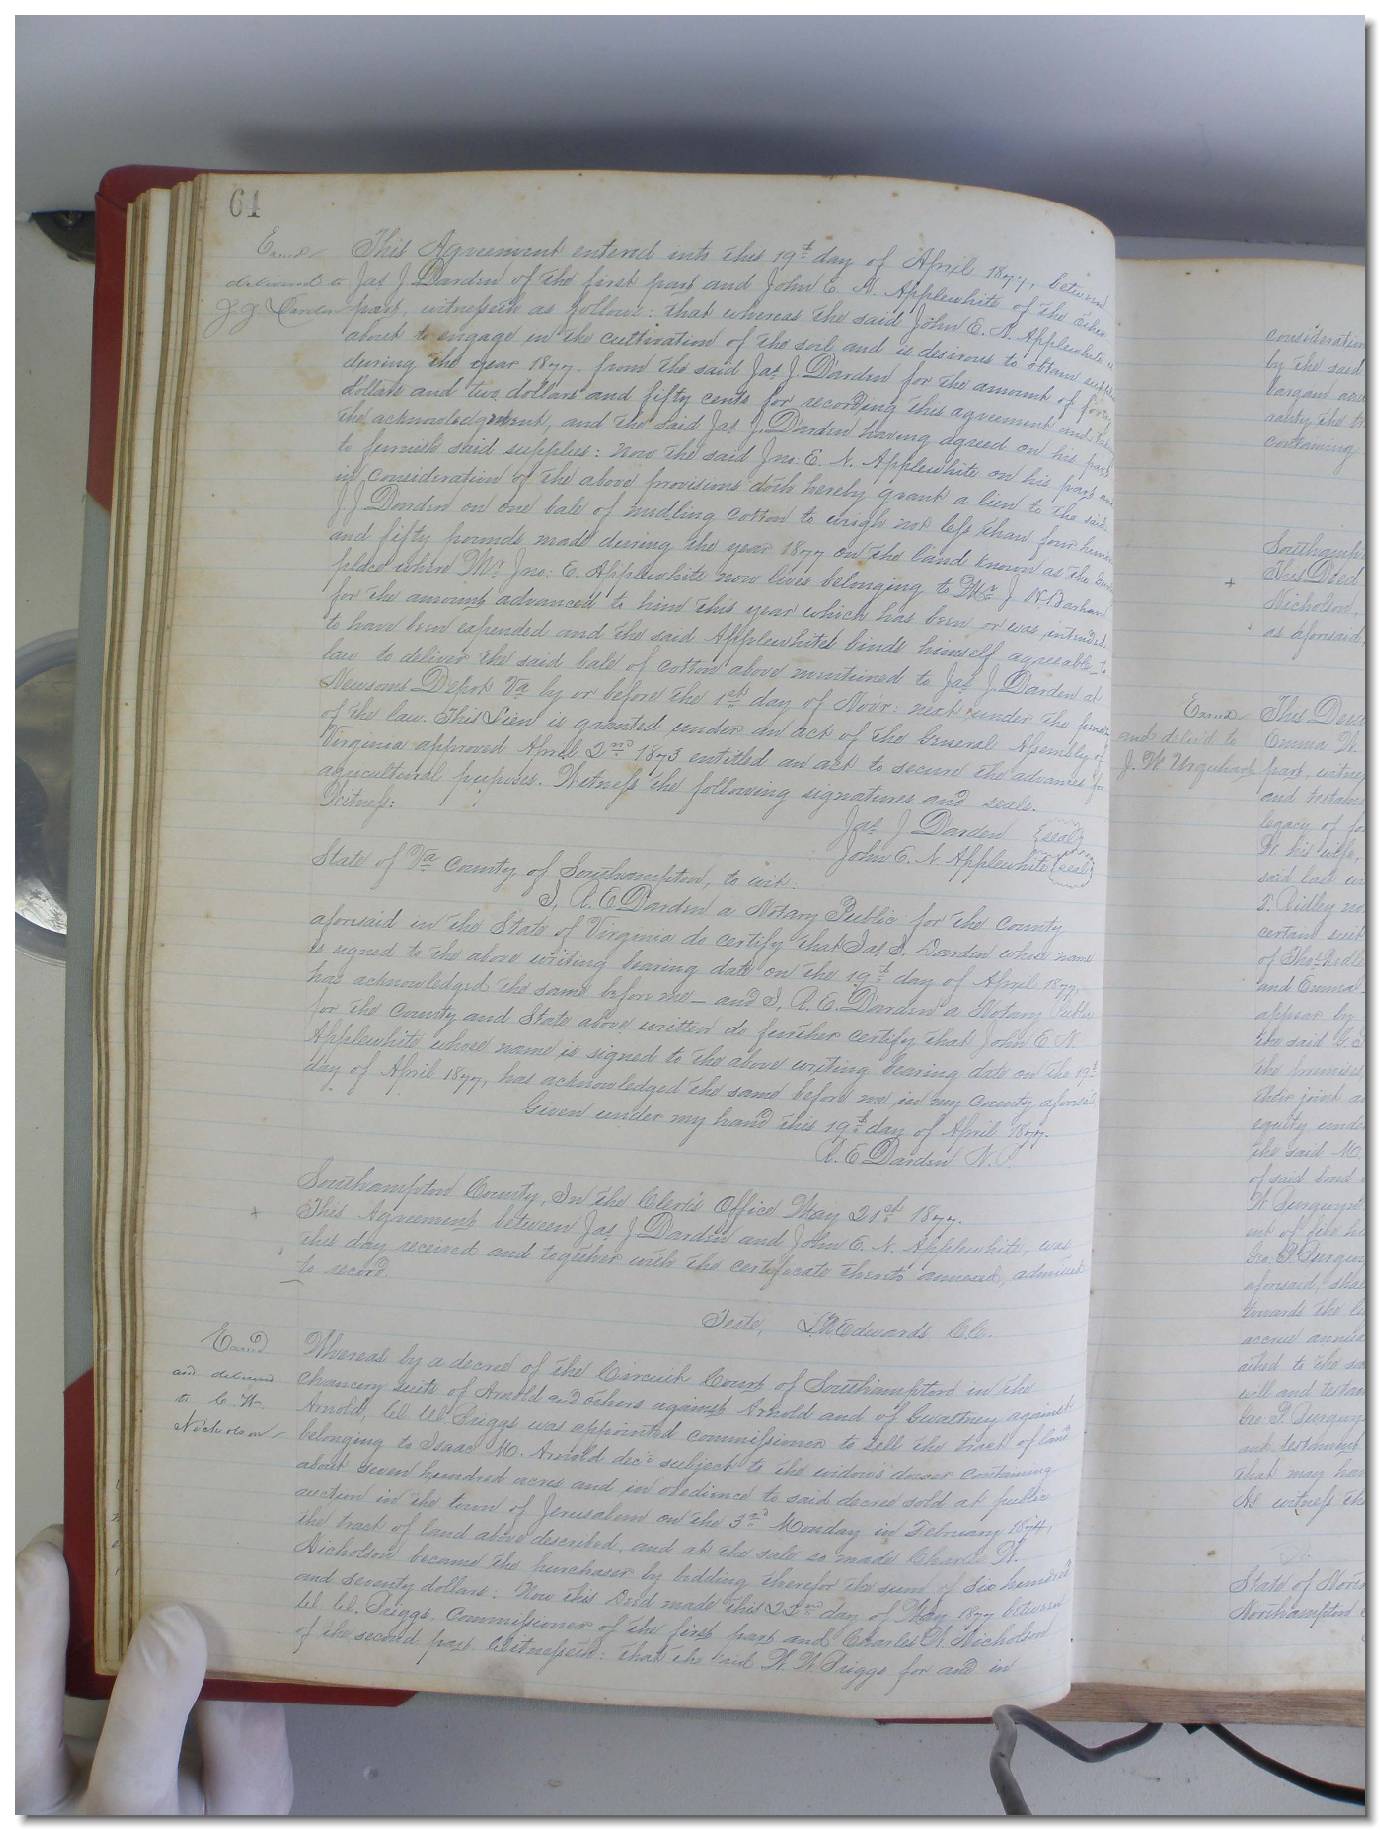 64
Exmd
delivered to
J J Darden
This Agreement entered into this 19th day of April 1877, between
Jas J Darden of the first part and John E. N. Applewhite of the other
part, witnesseth as follows: that whereas the said John E. N. Applewhite is
about to engage in the cultivation of the soil and is desirous to obtain supplies
during the year 1877 from the said Jas J. Darden for the amount of forty
dollars and two dollars and fifty cents for recording this agreement and taking
the acknowledgment, and the said Jas J. Darden having agreed on his part
to furnish said supplies: Now the said Jno. E. N. Applewhite on his part and
in consideration of the above provisions doth hereby grant a lien to the said
J J Darden on one bale of midling cotton to weigh not less than four hundred
and fifty pounds made during the year 1877 on the land known as the
place where Mr Jno: E. Applewhite now lives belonging to Mr J N. Barham
for the amount advanced to him this year which has been or was intended
to have been expended and the said Applewhite binds himself agreeable to
law to deliver the said bale of cotton above mentioned to Jas J. Darden at
Newsoms Depot Va by or before the 1st day of Novr: next under the
of the law. This Lien is granted under an act of the General Assembly of
Virginia approved April 2nd 1873 entitled an act to secure the advances for
agricultural purposes. Witness the following signatures and seals.
Witness:
Jas J Darden {seal}
John E. N. Applewhite {seal}
State of Va County of Southampton, to wit:
I, A. E Darden a Notary Public for the County
aforsaid in the State of Virginia do certify that Jas J. Darden whose name
is signed to the above writing bearing date on the 19th day of April 1877,
has acknowledged the same before me— and I, A. E. Darden a Notary Public
for the County and State above written do further certify that John E N
Applewhite whose name is signed to the above writing bearing date on the 19th
day of April 1877, has acknowledged the same before me in my County aforsaid,
Given under my hand this 19th day of April 1877.
A. E Darden N. P.
Southampton County, In the Clerk's Office May 21st 1877.
This Agreement between Jas J Darden and John E. N. Applewhite, was
this day received and together with the certificate thereto annexed, admitted
to record.
Teste, L. R Edwards C.C.
Exmd
and delivered
to C. W.
Nicholson
Whereas by a decree of the Circuit Court of Southampton in the
chancery suits of Arnold and others against Arnold and of Gwaltney against
Arnold, W. W. Briggs was appointed commissioner to sell the tract of land
belonging to Isaac M. Arnold decd subject to the widows dower containing
about seven hundred acres and in obedience to said decree sold at public
auction in the town of Jerusalem on the 3rd Monday in February 1874,
the tract of land above described, and at the sale so made Charles W.
Nicholson became the purchaser by bidding therefor the sum of six hundred
and seventy dollars: Now this Deed made this 22nd day of May 1877 between
W. W. Briggs, Commissioner of the first part and Charles W. Nicholson
of the second part Witnesseth: that the said W. W. Briggs for and in
consideration
by the said
bargain and
containing
Southampton
+ This Deed
Nicholson,
as aforsaid
Exmd
and deliv'd to
J. W Urquhart
This Deed
Emma W.
part, witnes
legacy of
W. his wife,
said last
certain suit
and Emma
appear by
the said G.
the premises
their joint
equity under
the said
of said bond
aforsaid, shall
towards the
will and testament
that may have
As witness the
State of North
Northampton